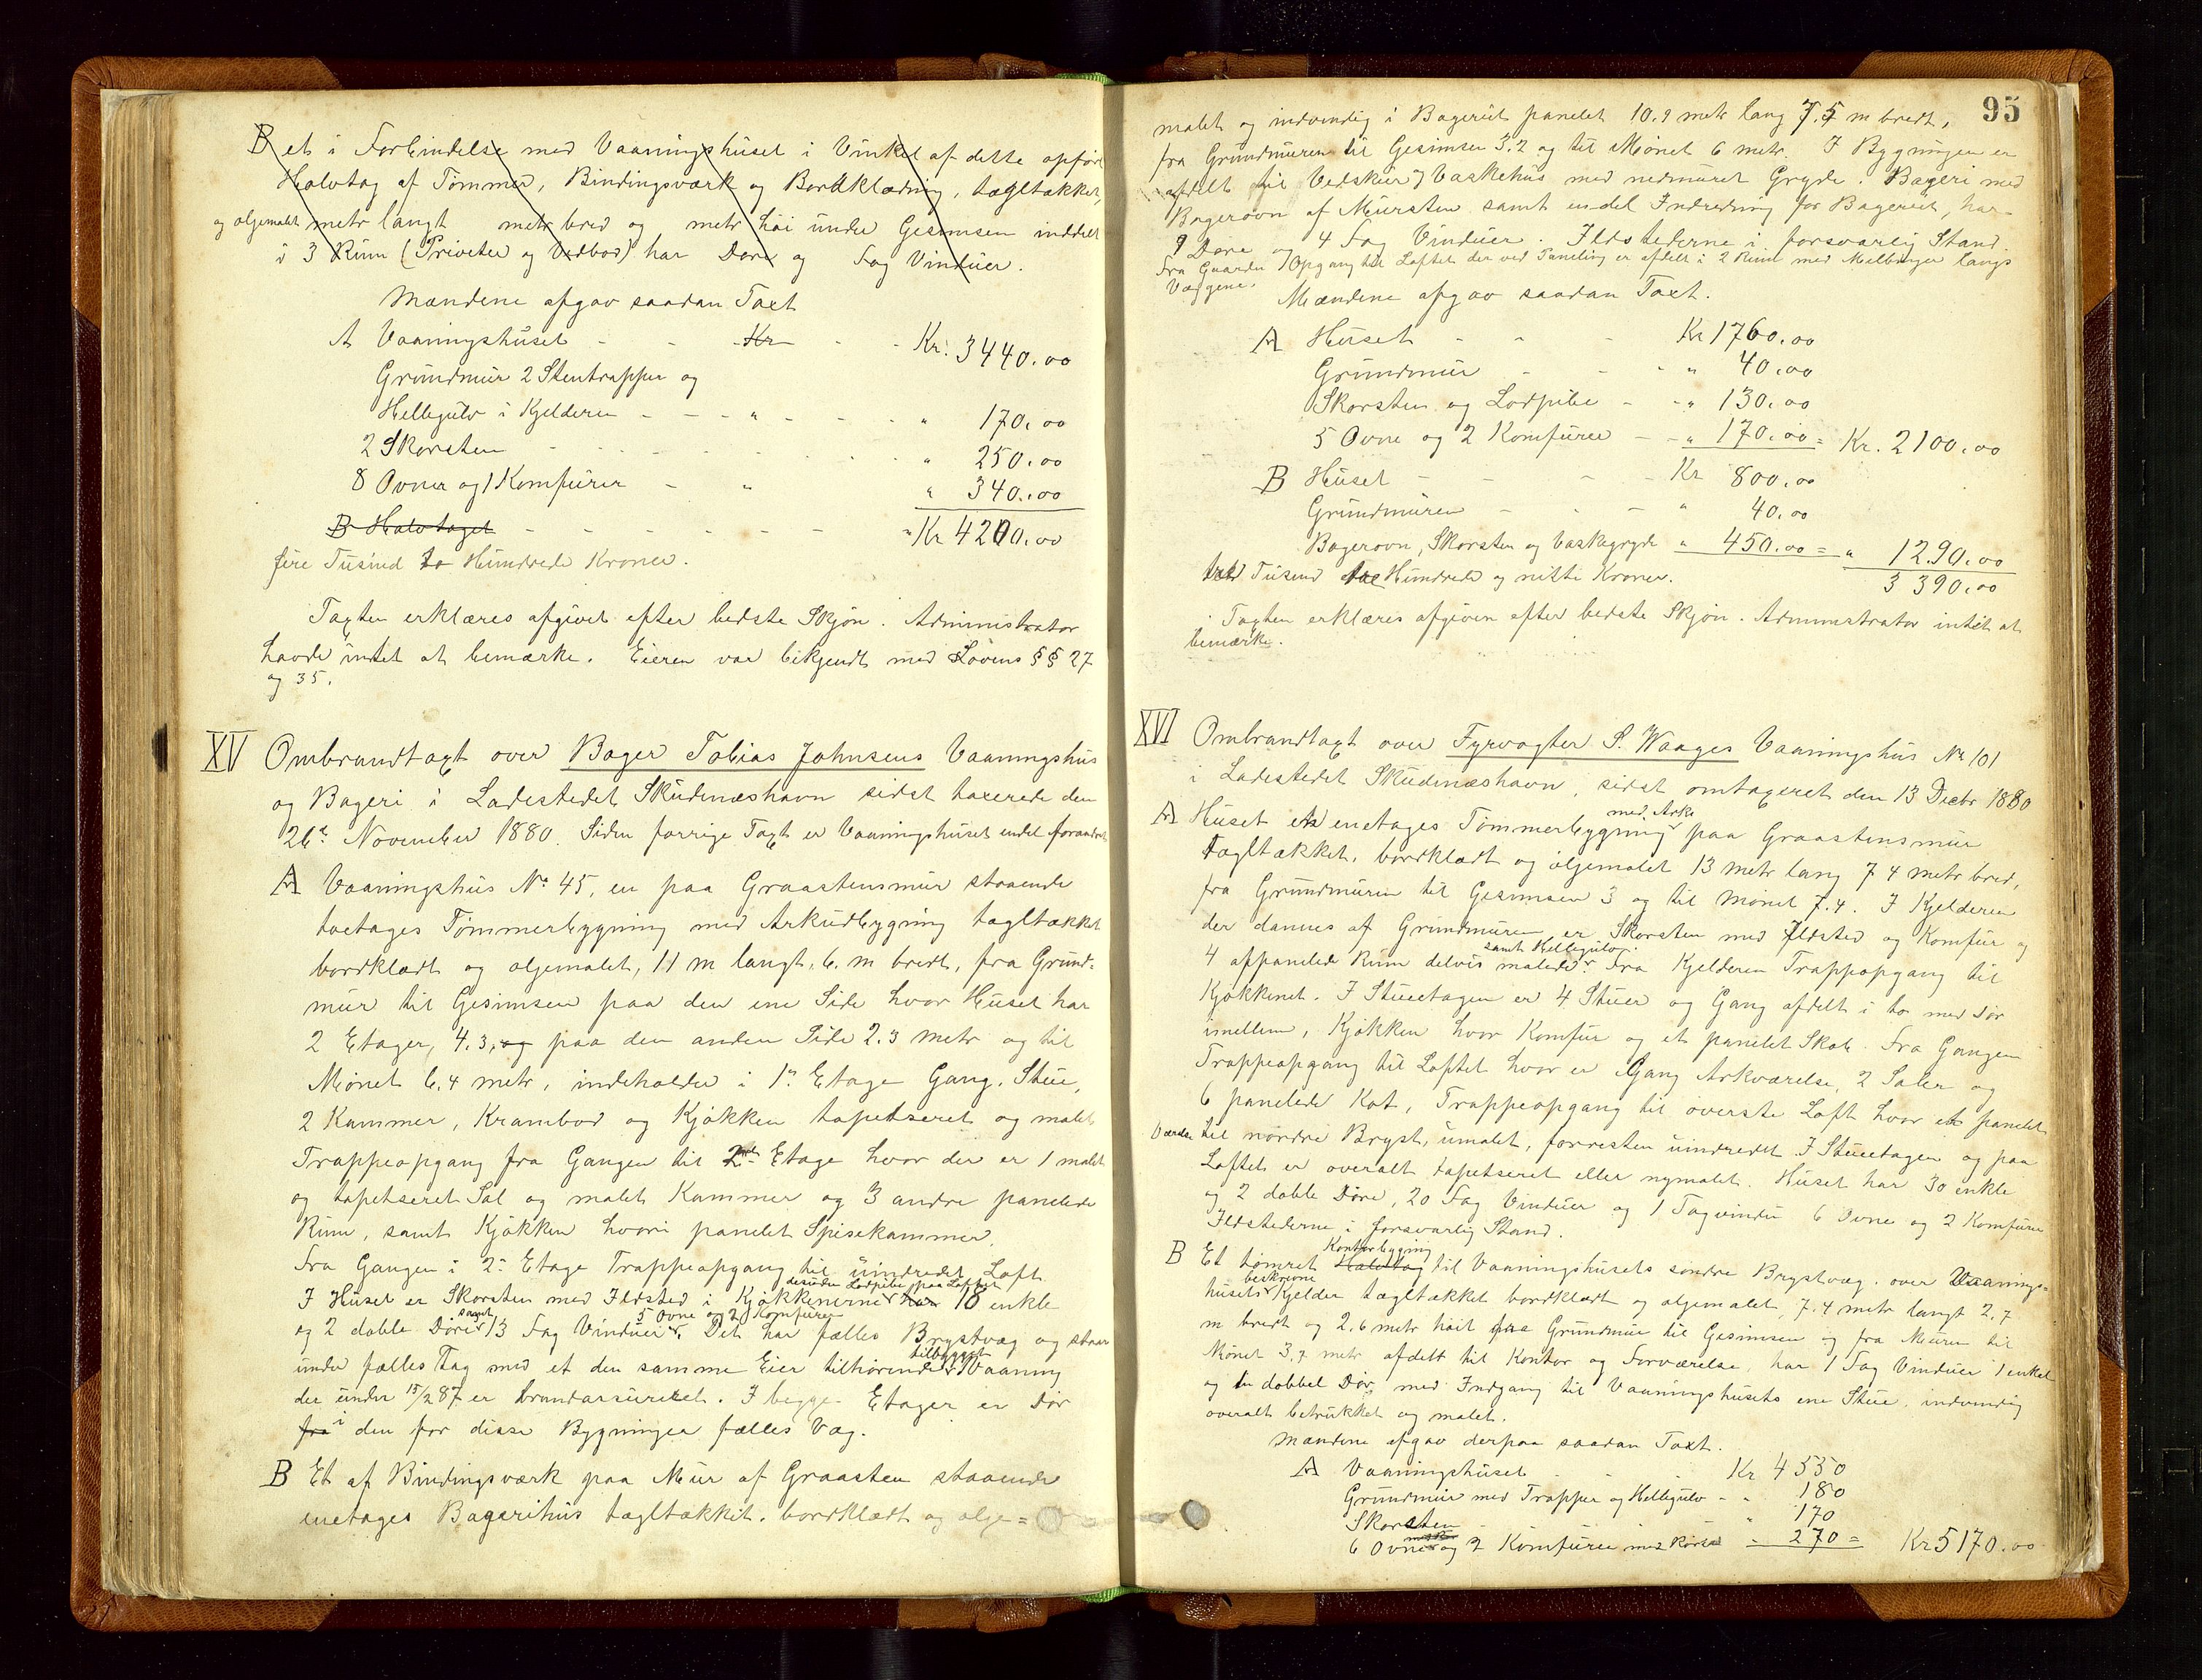 B et i Forbindelse med Vaaningshuset i Vinkel af dette opført
Halvtag af Tømmer, Bindingsværk og Bordklædning, tagltækket,
og oljemalet metr langt metr bred og metr høi under Gesimsen inddelt
i 3 Rum (Priveter og Vedbod) har Døre og Fag Vinduer.
Mændene afgav saadan Taxt
A Vaaningshuset - - Kr - - Kr. 3440.00
Grundmur 2 Stentrapper og
Hellegulv i Kjelderen - - - " - - - " 170.00
2 Skorsten - - - - - " 250.00
8 Ovner og 1 Komfurer - " " 340.00
B Halvtaget - - - - - - - Kr 4200.00
fire Tusind to Hundrede Kroner.
Taxten erklæres afgivet efter bedste Skjøn. Administrator
havde intet at bemærke. Eieren var bekjendt med Lovens §§ 27
og 35.
XV Ombrandtaxt over Bager Tobias Johnsens Vaaningshus
og Bageri i Ladestedet Skudesneshavn sidst taxerede den
26de November 1880. Siden forrige Taxt er Vaaningshuset endel forandret
A Vaaningshus No 45, en paa Graastensmur staaende
toetages Tømmerbygning med Arkudbygning tagltækket
bordklædt og oljemalet, 11 m langt, 6. m bredt, fra Grund=
mur til Gesimsen paa den ene Side hvor Huset har
2 Etager, 4.3, og paa den anden Side 2.3 metr og til
Mønet 6.4 metr, indeholder i 1ste Etage Gang, Stue,
2 Kammer, Krambod og Kjøkken tapetseret og malet
Trappeopgang fra Gangen til 2den Etage hvor der er 1 malet
og tapetseret Sal og malet Kammer og 3 andre panelede
Rum, samt Kjøkken hvori panelet Spisekammer.
Fra Gangen i 2den Etage Trappeopgang til uindredet Loft
desuden Lodpibe paa Loftet
I Huset er Skorsten med Ildsted i Kjøkkenerne har 18 enkle
samt 5 Ovne og 2 Komfurer
og 2 doble Døre 13 Fag Vinduer. Det har fælles Brystvæg og staar
tilbygget
under fælles Tag med et den samme Eier tilhørende Vaaning
der under 15/2 87 er brandassureret. I begge Etager er Dør
fra i den for disse Bygninger fælles Væg.
B Et af Bindingsværk paa Mur af Graasten staaende
enetages Bagerihus tagltækket, bordklædt og olje=
95
malet og indvendig i Bageriet panelet 10.9 metr lang 7.5 m bredt,
fra Grundmuren til Gesimsen 3.2 og til Mønet 6 metr. I Bygningen er
afdelt til Vedskur, Vaskehus med nedmuret Gryde. Bageri med
Bagerovn af Mursten samt endel Indredning for Bageriet, har
9 Døre og 4 Fag Vinduer. Ildstederne i forsvarlig Stand.
Fra Gaarden Opgang til Loftet der ved Paneling er afdelt i 2 Rum med Melbinger langs
Væggene.
Mændene afgav saadan Taxt.
A Huset - - - Kr 1760.00
Grundmur - - - " 40.00
Skorsten og Lodpibe - - " 130.00
5 Ovne og 2 Komfurer - - " 170.00 = Kr. 2100.00
B Huset - - - Kr 800.00
Grundmuren - - - " 40.00
Bagerovn, Skorsten og Vaskegryde " 450.00 = " 1290.00
3390.00
tre Tusend tre Hundrede og nitti Kroner.
Taxten erklæres afgiven efter bedste Skjøn. Administrator intet at
bemærke.
XVI Ombrandtaxt over Fyrvogter S. Waages Vaaningshus No 101
i Ladestedet Skudesneshavn, sidst omtaxeret den 13 Decbr 1880
med Ark
A Huset en enetages Tømmerbygning paa Graastensmur
tagltækket, bordklædt og oljemalet 13 metr lang 7.4 metr bred,
fra Grundmuren til Gesimsen 3 og til Mønet 7.4. I Kjelderen
der dannes af Grundmuren er Skorsten med Ildsted og Komfur og
samt Hellegulv
4 afpanelede Rum delvis malede. Fra Kjelderen Trappopgang til
Kjøkkenet. I Stueetagen er 4 Stuer og Gang afdelt i to med Dør
imellem, Kjøkken hvor Komfur og et panelet Skab. Fra Gangen
Trappeopgang til Loftet hvor er Gang Arkværelse, 2 Saler og
6 panelede Kot, Trappeopgang til øverste Loft hvor et panelt
Værelse til nordre Bryst, umalet, forresten uindredet. I Stueetagen og paa
Loftet er overalt tapetseret eller nymalet. Huset har 30 enkle
og 2 doble Døre, 20 Fag Vinduer og 1 Tagvindu 6 Ovne og 2 Komfurer
Ildstederne i forsvarlig Stand.
Kontorbygning
B Et tømret Halvtag til Vaaningshusets søndre Brystvæg, over Vaanings=
beskrevne
husets Kjelder tagltækket bordklædt og oljemalet, 7.4 metr langt 2.7
m bredt og 2.6 metr høit fra Grundmur til Gesimsen og fra Muren til
Mønet 3.7 metr afdelt til Kontor og Forværelse, har 1 Fag Vinduer 1 enkel
og en dobbel Dør, med Indgang til Vaaningshusets ene Stue, indvendig
overalt betrukket og malet.
Mændene afgav derpaa saadan Taxt.
A Vaaningshuset - - - Kr 4550
Grundmur med Trapper og Hellegulv - " 180
Skorsten - " 170
6 Ovne og 2 Komfurer med Rør " 270 = Kr 5170.00